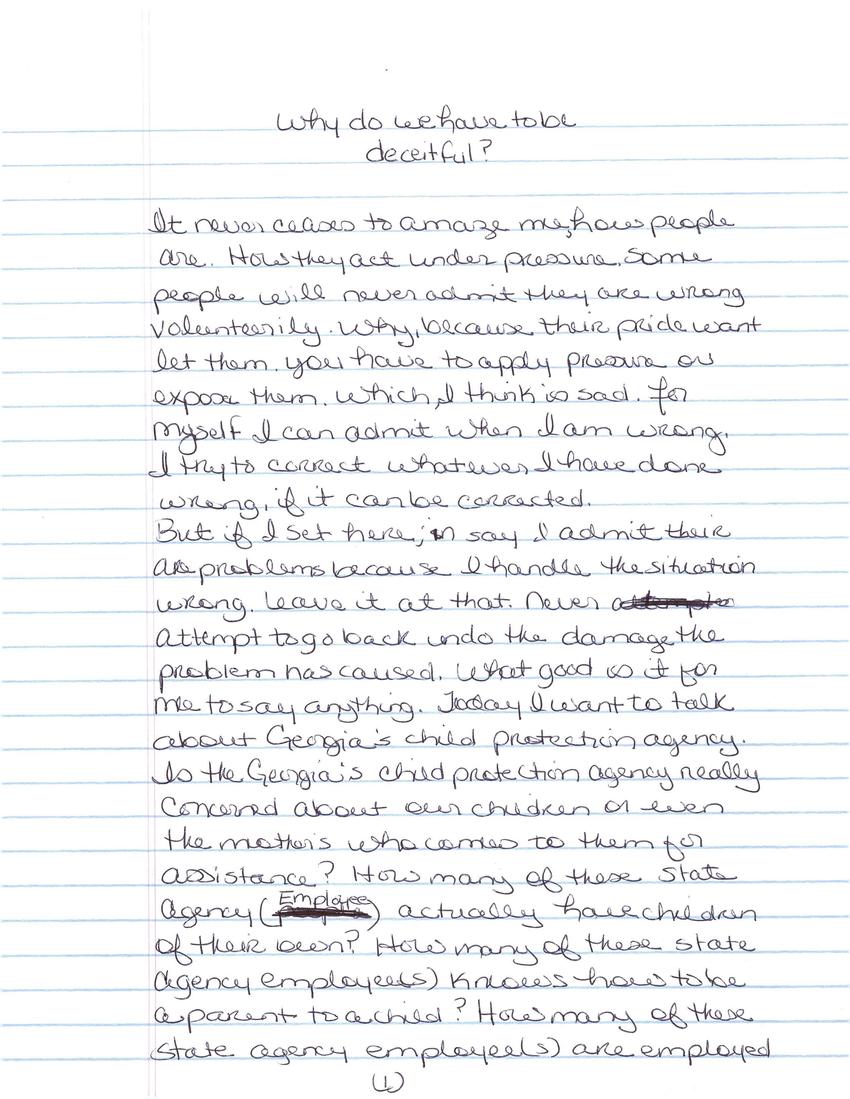 Why do we have to be
deceitful?
It never ceases to amaze me, how people
are. How they act under pressure. Some
people will never admit they are wrong
volenteerily. Why, because their pride want
let them. you have to apply pressure or
expose them. Which, I think is sad. For
myself I can admit when I am wrong.
I try to correct whatever I have done
wrong, if it can be corrected.
But if I set here, in say I admit their
are problems because I handle the situation
wrong. Leave it at that. Never
attempt to go back undo the damage the
problem has caused. What good is it for
me to say anything. Today I want to talk
about Georgia's child protection agency.
Is the Georgia's child protection agency really
Concerned about our children or even
the mother's who comes to them for
assistance? How many of these state
agency (Employee) actually have children
of their own? How many of these state
agency employee(s) knows how to be
a parent to a child? How many of these
state agency employee(s) are employed
(1)